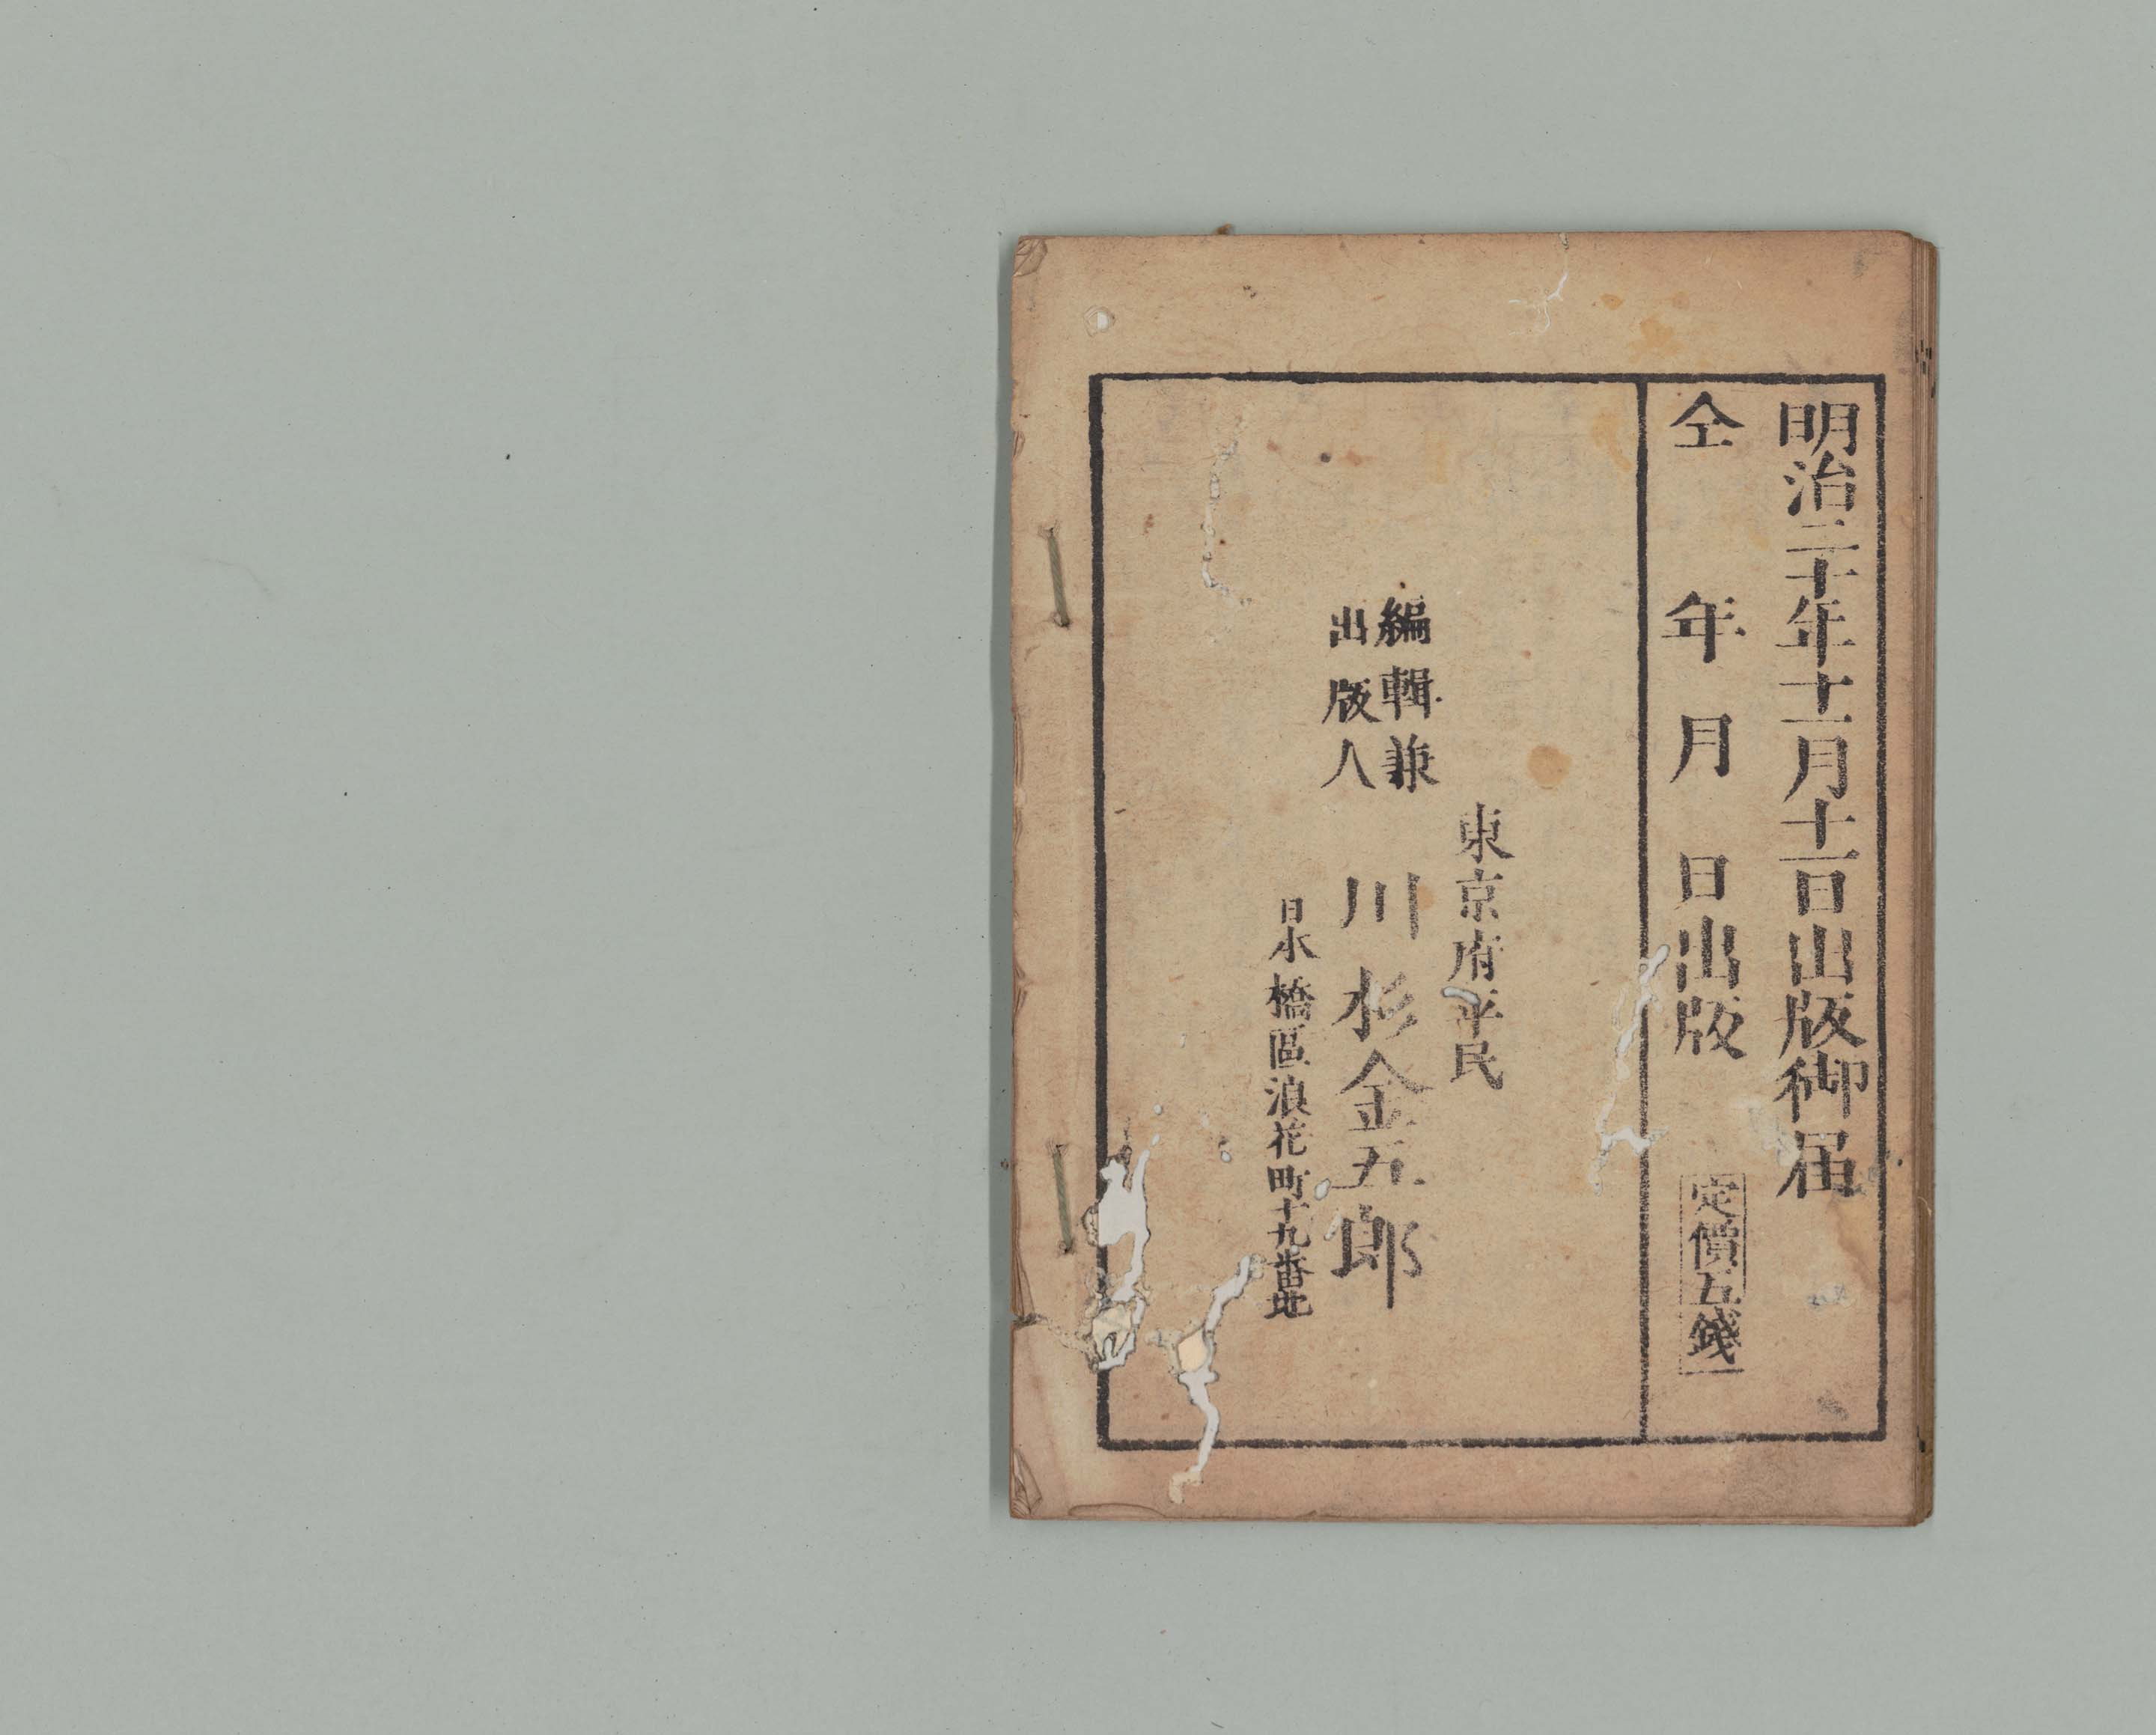 明治二十年十一月十一日出版御届
仝年月日出版
定價五錢
東京府平民
編輯兼
出版人
川杉金五郎
日本橋區浪花町十九番地